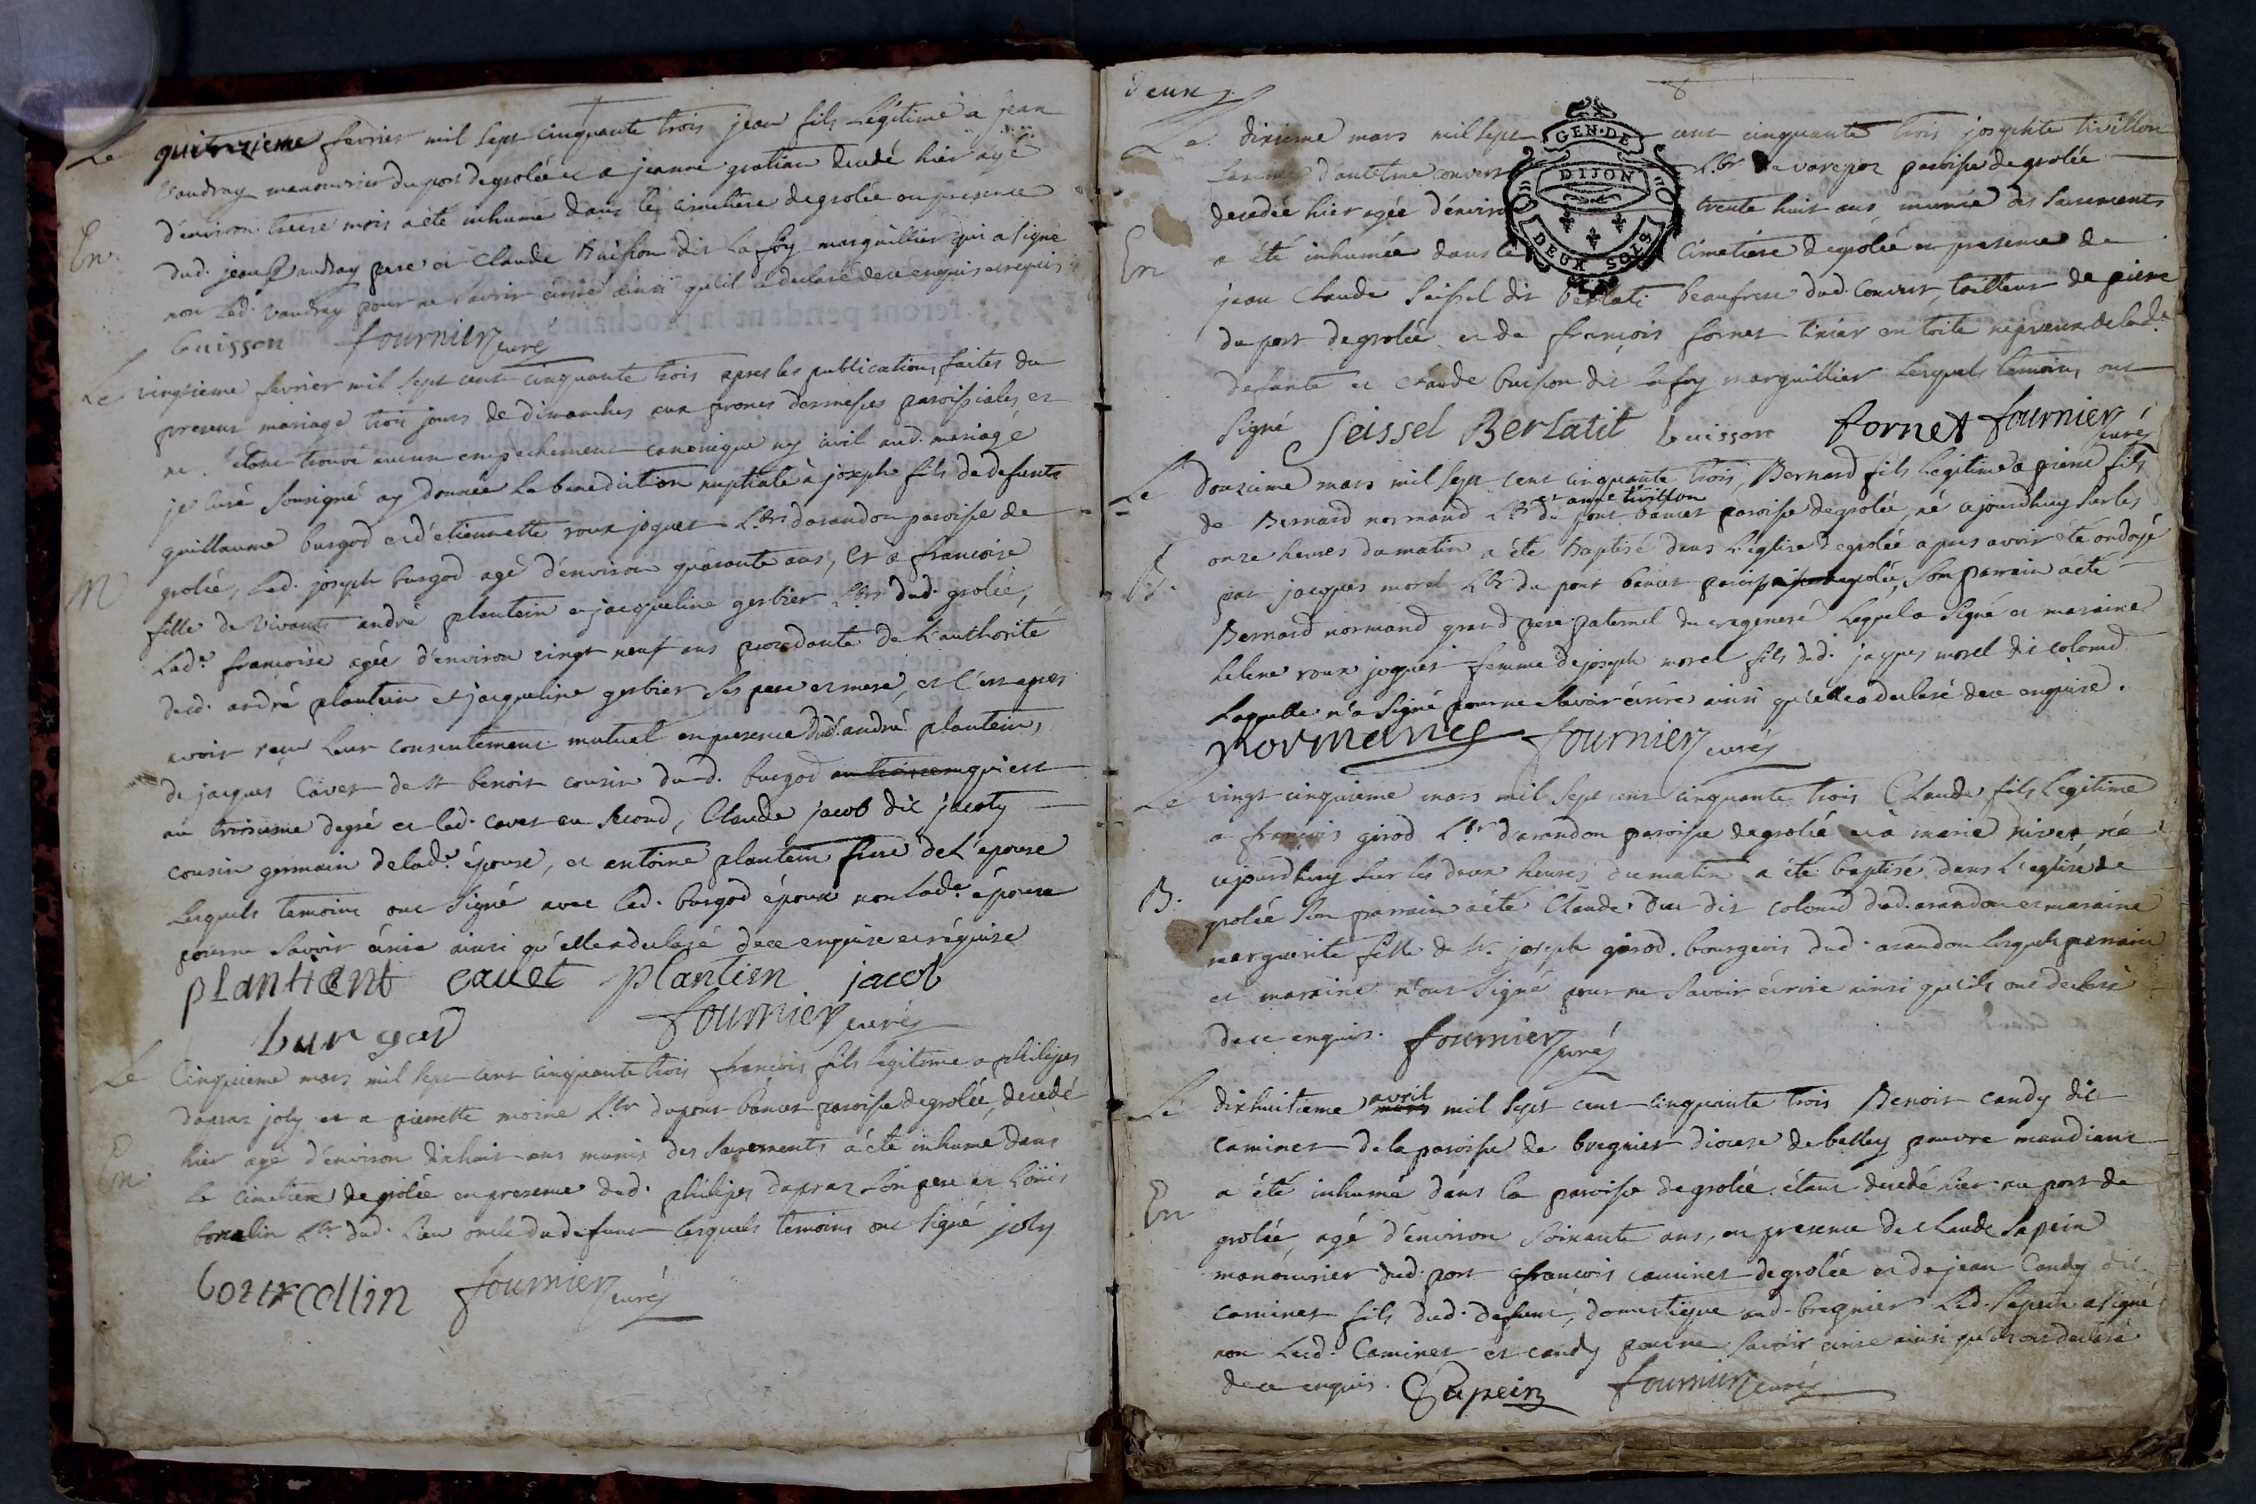 Le quinzieme fevrier mil sept cinquante trois jean fils Légitime a jean
Vaudray manouvrier du port de grolée et a jeanne gratian decedé hier agé
En. d'environ treize mois a été inhumé dans le cimetiere de grolée en presence
dud. jean Vaudray pere et Claude Buisson dit La foy marguillier qui a signé
non led. Vaudray pour ne savoir écrire ainsi qu'il a declaré de ce enquis et requis
buisson fournier curé
Le vingtieme fevrier mil sept cent cinquante trois apres les publications faites du
present mariage trois jours de dimanches aux prones des messes paroissiales, et
ne s'etant trouvé aucun empechement canonique ny civil aud. mariage
je curé soussigné ay donnée La benediction nuptiale à joseph fils de defunts
guillaume burgod et d'étiennette roux joguet L.brs d'arandon paroisse de
M grolée, Led. joseph burgod agé d'environ quarante ans, Et a francoise
fille de vivants andré plantein et jacqueline gerbier L.brs dud. grolée,
Lad.e francoise agée d'environ vingt neuf ans procedante de L'authorité
dud. andré plantein et jacqueline gerbier ses pere et mere, et c'est apres
avoir reçu leur consentement mutuel en presence dud. andré plantein,
de jacques Cavet de st benoit cousin dud. burgod qui est
au troisieme degré et led. cavet au second, Claude jacob dit jacoty
cousin germain de lad.e épouse, et antoine plantein frere de L'épouse
Lesquels temoins ont signé avec led. burgod époux non Lad.e épouse
pour ne savoir écrire ainsi qu'elle a declaré de ce enquise et réquise
plantient cauet plantien jacob
burgod fournier curé
Le Cinquieme mars mil sept cent cinquante trois francois fils legitime a philipes
dapraz joly et a pierrette moine L.br du pont bancet paroisse de grolée, decedé
En. hier agé d'environ dixhuit ans munis des sacrements a été inhumé dans
Le cimetiere de grolée en presence dud. philipes dapraz son pere et Loüis
L.br dud. Lieu oncle du defunt Lesquels temoins ont signé joly
bourcellin fournier curé
deux
Le dixieme mars mil sept cent cinquante trois josephte tivillon
femme d'antelme convert L.br de varepoz paroisse de grolée
decedée hier agée d'environ trente huit ans munie des sacrements
En a été inhumée dans le Cimetiere de grolée en presence de
jean Claude seissel dit berlati beaufrere dud. Convert, tailleur de pierre
du port de grolée et de françois fornet tixier en toile nepveux de lad.e
defunte et claude buisson dit Lafoy marguillier Lesquels temoins ont
signé Seissel Berlatit buisson fornet fournier curé
GEN. DE
DIJON
DEUX SOLS
Le douzieme mars mil sept cent cinquante trois, Bernard fils Legitime a pierre fils
et anne tivillon
de Bernard normand L.br du pont bancet paroisse de grolée, né ajourdhuy sur les
onze heures du matin a été Baptisé dans L'eglise de grolée apres avoir été ondoyé
B. par jacques morel L.br du pont bancet de grolée, son parrain a été
Bernard normand grand pere paternel du regeneré Lequel a signé et maraine
helene roux joguet femme de joseph morel fils dud. jacques morel dit colomd
Laquelle n'a signé pour ne savoir écrire ainsi qu'elle a declaré de ce enquise.
Normand fournier curé
Le vingt cinquieme mars mil sept cent cinquante trois Claude fils Legitime
a françois girod L.br d'arandon paroisse de grolée et à marie nivet né
ajourdhuy sur les deux heures du matin a été baptisé dans L'eglise de
B. grolée son parrain a été Claude duc dit colomd dud. arandon et maraine
marguerite fille de sr. joseph girod bourgeois dud. arandon lesquels parrain
et maraine n'ont signé pour ne savoir écrire ainsi qu'ils ont declaré
de ce enquis. fournier curé
Le dixhuitieme avril mil sept cent cinquante trois Benoit candy dit
caminet de la paroisse de bregnier diocese de belley pauvre mandiant
En a été inhumé dans la paroisse de grolée étant decedé hier au port de
grolée, agé d'environ soixante ans, en presence de claude sapein
manouvrier dud. port françois caminet de grolée et de jean Candy dit
caminet fils dud. defunt, domestique aud. bregnier Led. sapein a signé
non Lesd. Caminet et candy pour ne savoir écrire ainsi qu'ils ont declaré
de ce enquis. C Sapein fournier curé